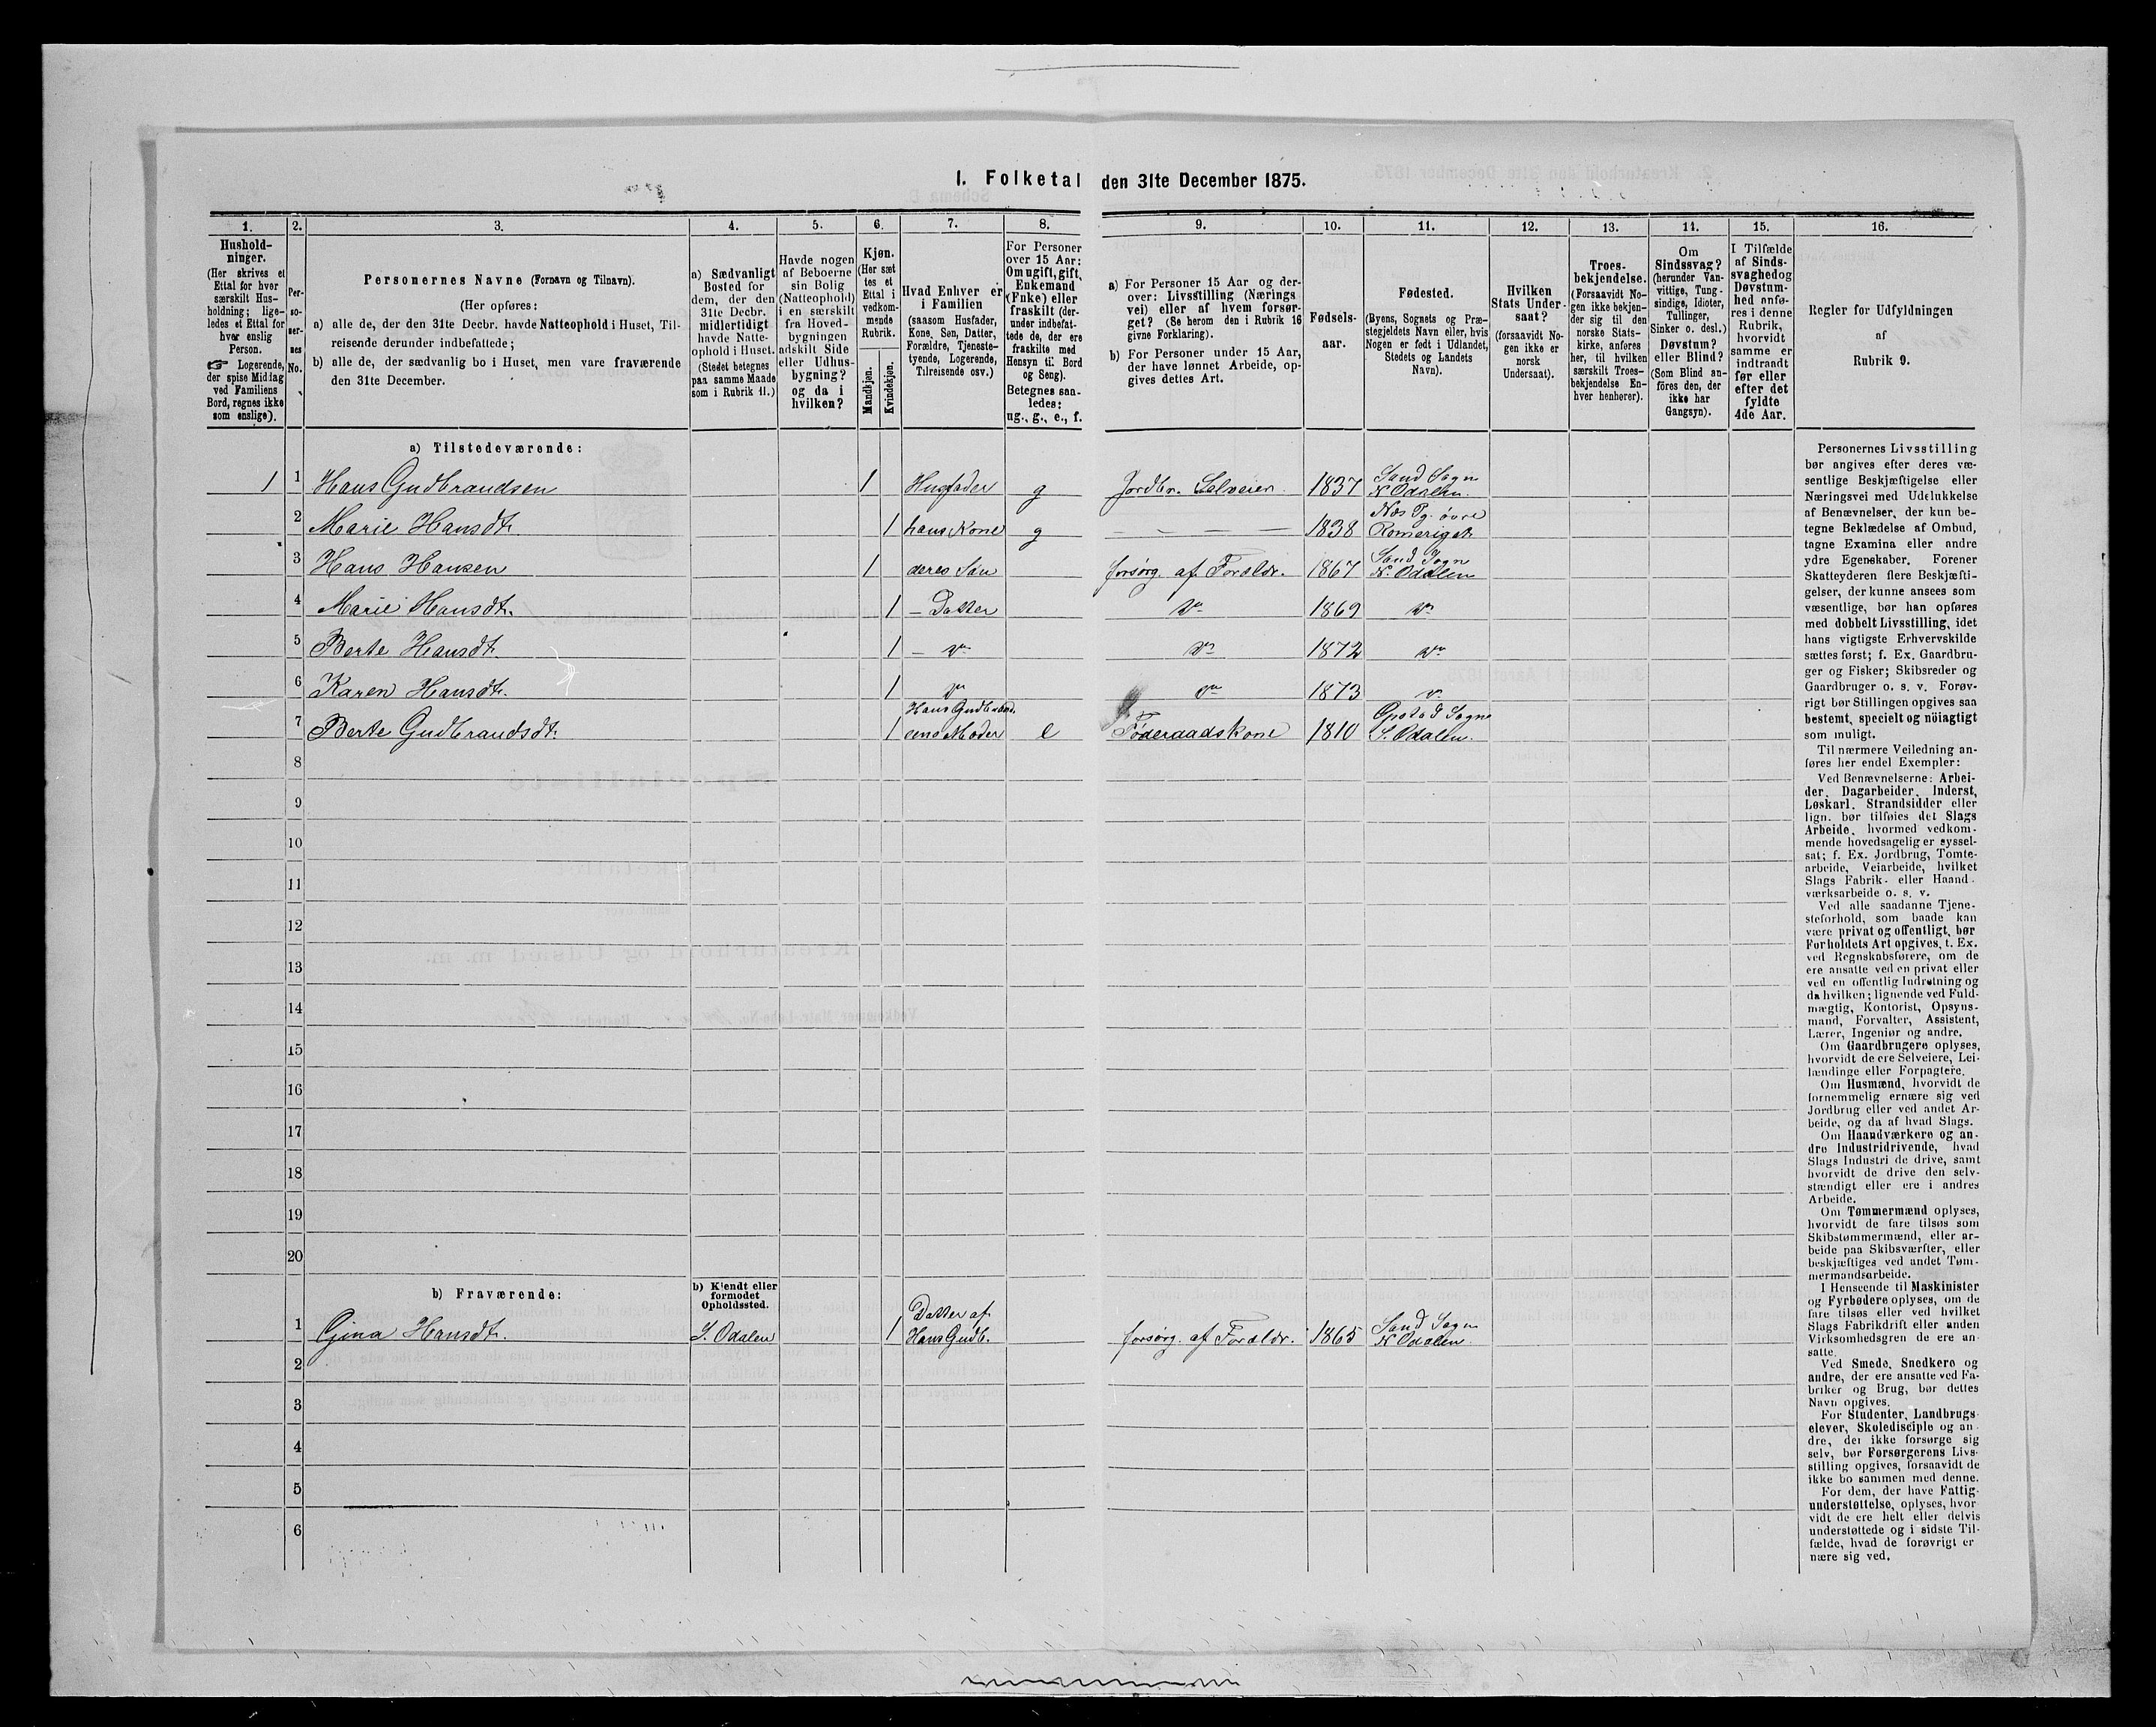 I. Folketal den 31te December 1875.
1. 2. 3. 4. 5. 6. 7. 8. 9. 10. 11. 12. 13. 14. 15. 16.
Hushold-
ninger.
(Her skrives et
Ettal for hver
særskilt Hus-
holdning; lige-
ledes et Ettal for
hver enslig
Person.
☞ Logerende,
der spise Middag
ved Familiens
Bord, regnes ikke
som enslige).
Per-
so-
ner-
nes
No.
Personernes Navne (Fornavn og Tilnavn).
(Her opføres:
a) alle de, der den 31te Decbr. havde Natteophold i Huset, Til-
reisende derunder indbefattede;
b) alle de, der sædvanlig bo i Huset, men vare fraværende
den 31te December.
a) Sædvanligt
Bosted for
dem, der den
31te Decbr.
midlertidigt
havde Natte-
ophold i Huset.
(Stedet betegnes
paa samme Maade
som i Rubrik 11.)
Havde nogen
af Beboerne
sin Bolig
(Natteophold)
i en særskilt
fra Hoved-
bygningen
adskilt Side
eller Udhus-
bygning?
og da i
hvilken?
Kjøn.
(Her sæt
tes et
Ettal i
vedkom-
mende
Rubrik.
Mandkjøn.
Kvindekjøn.
Hvad Enhver er
i Familien
(saasom Husfader,
Kone, Søn, Datter,
Forældre, Tjeneste-
tyende, Logerende,
Tilreisende osv.)
For Personer
over 15 Aar:
Om ugift, gift,
Enkemand
(Enke) eller
fraskilt (der-
under indbefat-
tede de, der ere
fraskilte med
Hensyn til Bord
og Seng).
Betegnes saa-
ledes:
ug., g., e., f.
a) For Personer 15 Aar og der-
over: Livsstilling (Nærings
vei) eller af hvem forsør-
get? (Se herom den i Rubrik 16
givne Forklaring).
b) For Personer under 15 Aar,
der have lønnet Arbeide, op-
gives dettes Art.
Fødsels-
aar.
Fødested.
(Byens, Sognets og Præ-
stegjeldets Navn eller, hvis
Nogen er født i Udlandet,
Stedets og Landets
Navn).
Hvilken
Stats Under-
saat?
(forsaavidt No-
gen ikke er
norsk
Undersaat).
Troes-
bekjendelse.
(Forsaavidt No-
gen ikke bekjen-
der sig til den
norske Stats-
kirke, anføres
her, til hvilken
særskilt Troes-
bekjendelse En-
hver henhører).
Om
Sindssvag?
(herunder Van-
vittige, Tung-
sindige, Idioter,
Tullinger,
Sinker o. desl.)
Døvstum?
eller Blind?
(Som Blind an-
føres den, der
ikke har
Gangsyn).
I Tilfælde
af Sinds-
svaghed og
Døvstum-
hed anfø-
res i denne
Rubrik,
hvorvidt
samme er
indtraadt
før eller
efter det
fyldte
4de Aar.
Regler for Udfyldningen
af
Rubrik 9.
a) Tilstedeværende:
1 1 Hans Gudbrandsen 1 Husfader g Jordbr. Selveier. 1837 Sand Sogn N Odalen.
2 Marie Hansdt. 1 hans Kone g — — — 1838 Næs Pg. øvre Romerige
3 Hans Hansen 1 deres Søn forsørg. af Foreldr. 1867 Sand Sogn N. Odalen
4 Marie Hansdt. 1 – Datter do 1869 do
5 Berte Hansdt. 1 – do do 1872 do
6 Karen Hansdt. 1 do do 1873 do
7 Berte Gudbrandsdt. 1 Hans Gudbrand. sens Moder e Føderaadskone 1810 Opstad Sogn S. Odalen.
8
9
10
11
12
13
14
15
16
17
18
19
20
b) Fraværende:
b) Kjendt eller
formodet
Opholdssted.
1 Gina Hansdt. S. Odalen 1 Datter af Hans Gudb. forsørg. af Foreldr. 1865 Sand Sogn N Odalen.
2
3
4
5
6
Personernes Livsstilling
bør angives efter deres væ-
sentlige Beskjæftigelse eller
Næringsvei med Udelukkelse
af Benævnelser, der kun be-
tegne Beklædelse af Ombud,
tagne Examina eller andre
ydre Egenskaber. Forener
Skatteyderen flere Beskjæfti-
gelser, der kunne ansees som
væsentlige, bør han opføres
med dobbelt Livsstilling, idet
hans vigtigste Erhvervskilde
sættes først; f. Ex. Gaardbru-
ger og Fisker; Skibsreder og
Gaardbruger o. s. v. Forøv-
rigt bør Stillingen opgives saa
bestemt, specielt og nöiagtigt
som muligt.
Til nærmere Veiledning an-
føres her endel Exempler:
Ved Benævnelserne: Arbei-
der, Dagarbeider, Inderst,
Løskarl, Strandsidder eller
lign. bør tilføies det Slags
Arbeide, hvormed vedkom-
mende hovedsagelig er syssel-
sat; f. Ex. Jordbrug, Tomte-
arbeide, Veiarbeide, hvilket
Slags Fabrik- eller Haand-
værksarbeide o. s. v.
Ved alle saadanne Tjene-
steforhold, som baade kan
være privat og offentligt, bør
Forholdets Art opgives, t. Ex.
ved Regnskabsførere, om de
ere ansatte ved en privat eller
ved en offentlig Indretning og
da hvilken; lignende ved Fuld-
mægtig, Kontorist, Opsyns-
mand, Forvalter, Assistent,
Lærer, Ingeniør og andre.
Om Gaardbrugere oplyses,
hvorvidt de ere Selveiere, Lei-
lændinge eller Forpagtere.
Om Husmænd, hvorvidt de
fornemmelig ernære sig ved
Jordbrug eller ved andet Ar-
beide, og da af hvad Slags.
Om Haandværkere og an-
dre Industridrivende, hvad
Slags Industri de drive, samt
hvorvidt de drive den selv-
stændigt eller ere i andres
Arbeide.
Om Tømmermænd oplyses,
hvorvidt de fare tilsøs som
Skibstømmermænd, eller ar-
beide paa Skibsværfter, eller
beskjæftiges ved andet Tøm-
mermandsarbeide.
I Henseende til Maskinister
og Fyrbødere oplyses, om de
fare tilsøs eller ved hvilket
Slags Fabrikdrift eller anden
Virksomhedsgren de ere an-
satte.
Ved Smede, Snedkere og
andre, der ere ansatte ved Fa-
briker og Brug, bør dettes
Navn opgives.
For Studenter, Landbrugs-
elever, Skoledisciple og an-
dre, der ikke forsørge sig
selv, bør Forsørgerens Livs-
stilling opgives, forsaavidt de
ikke bo sammen med denne.
For dem, der have Fattig-
understøttelse, oplyses, hvor-
vidt de ere helt eller delvis
understøttede og i sidste Til-
fælde, hvad de forøvrigt er
nære sig ved.